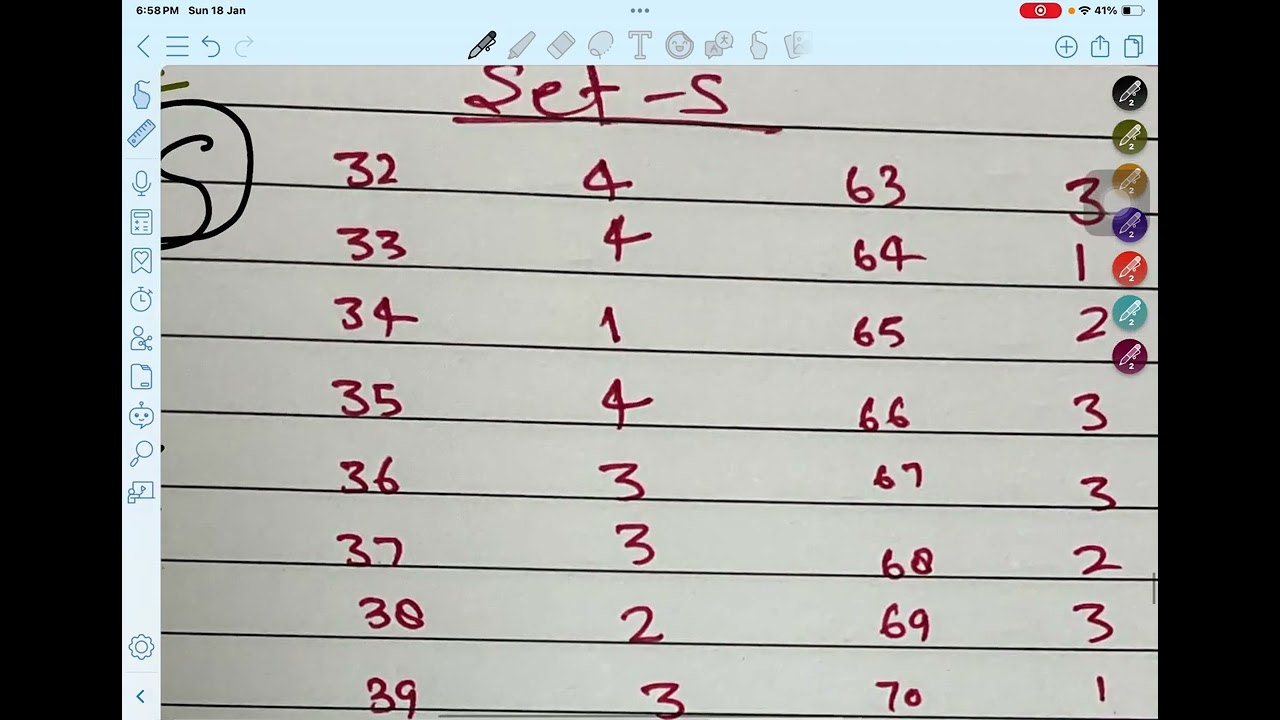 6:58 PM Sun 18 Jan 41%
Set - S
S
32 4 63 3
33 4 64 1
34 1 65 2
35 4 66 3
36 3 67 3
37 3 68 2
38 2 69 3
39 3 70 1